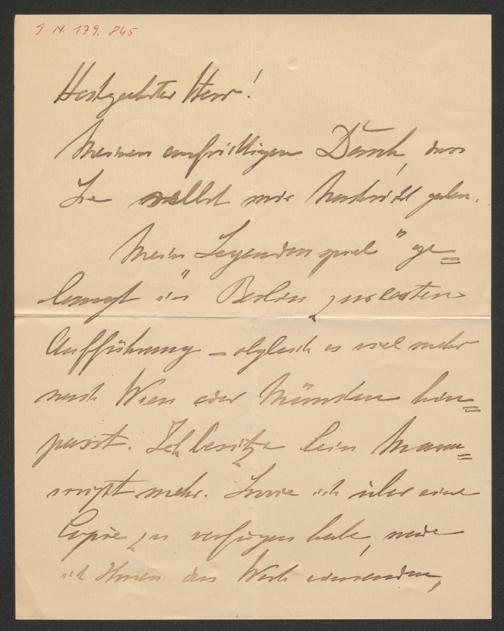 J. N. 179.845
Hochgeehrter Herr!
Meinen aufrichtigen Dank, dass
Sie selbst mir Nachricht geben.
Mein Legendenspiel " ge=
langt in Berlin zur ersten
Aufführung – obgleich es viel mehr
nach Wien oder München hin=
passt. Ich besitze kein Manu=
script mehr. Sowie ich über eine
Copie zu verfügen habe, werde
ich Ihnen das Werk einsenden,